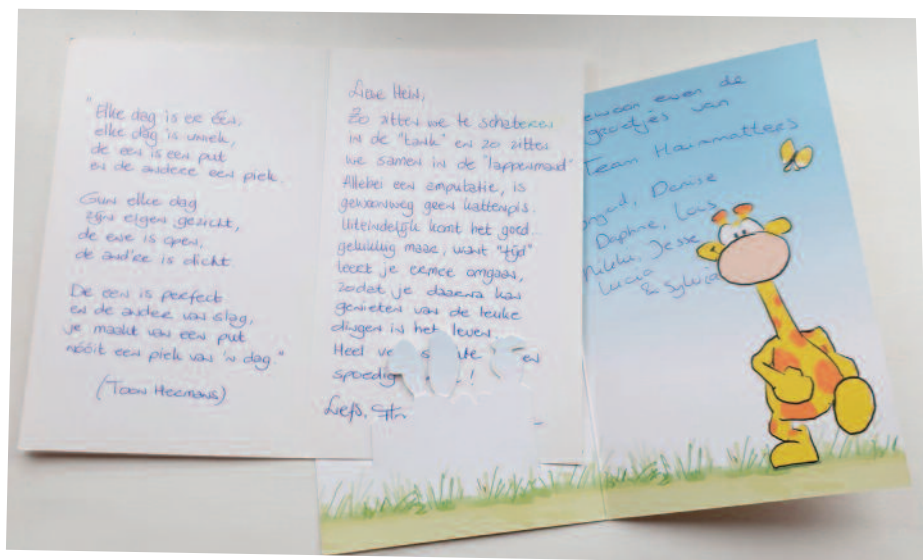 "Elke dag is er één,
elke dag is uniek,
de een is een put
en de andere een piek.
Gun elke dag
zijn eigen gezicht,
de ene is open,
de and're is dicht.
De een is perfect
en de ander van slag,
je maakt van een put
nóóit een piek van 'n dag."
(Toon Hermans)
Lieve Hein,
Zo zitten we te schateren
in de "tank" en zo zitten
we samen in de "lappenmand"
Allebei een amputatie, is
gewoonweg geen kattenpis.
Uiteindelijk komt het goed
gelukkig maar, want "tijd"
leert je ermee omgaan,
zodat je daarna kan
genieten van de leuke
dingen in het leven.
Heel
spoedig !
Liefs,
even de
groetjes van
Team Hammattees
Denise
Daphne, Lois
Nikki, Jesse
Lucia
& Sylvia